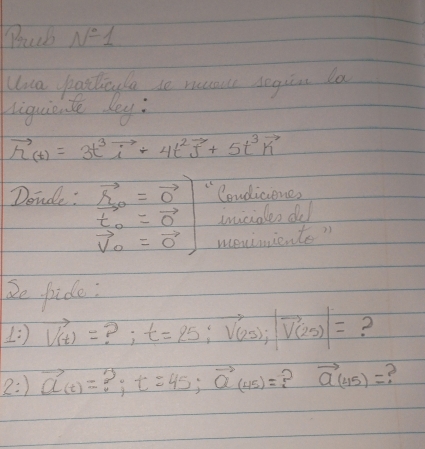 Prueb Nº1
Una partícula se mueve según la
siguiente ley:
r⃗(t) = 3t³ i⃗ + 4t² j⃗ + 5t³ k⃗
Dónde: r⃗₀ = 0⃗ "Condiciones
t⃗₀ = 0⃗ iniciales del
v⃗₀ = 0⃗ movimiento"
Se pide:
1:) V⃗(t) = ? ; t=2s ; V⃗(2s) ; |V⃗(2s)| = ?
2:) a⃗(t) = ? ; t=4s ; a⃗(4s) = ? a⃗(4s) = ?